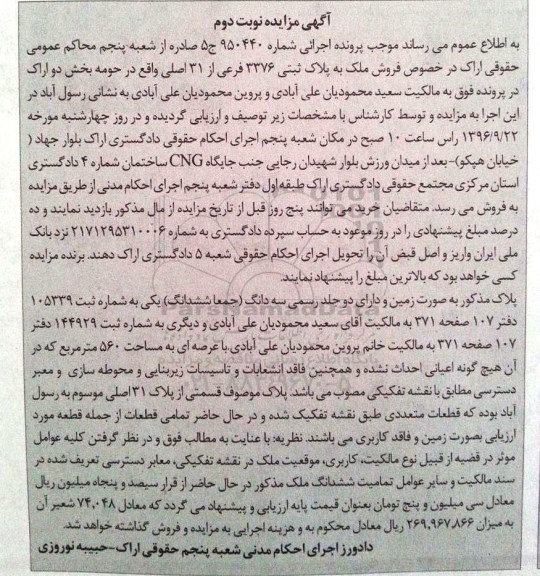 آگهی مزایده نوبت دوم
به اطلاع عموم می رساند موجب پرونده اجرائی شماره ۹۵۰۴۴۰ ج۵ صادره از شعبه پنجم محاکم عمومی
حقوقی اراک در خصوص فروش ملک به پلاک ثبتی ۳۳۷۶ فرعی از ۳۱ اصلی واقع در حومه بخش دو اراک
در پرونده فوق به مالکیت سعید محمودیان علی آبادی و پروین محمودیان علی آبادی به نشانی رسول آباد در
این اجرا به مزایده و توسط کارشناس با مشخصات زیر توصیف و ارزیابی گردیده و در روز چهارشنبه مورخه
۱۳۹۶/۹/۲۲ راس ساعت ۱۰ صبح در مکان شعبه پنجم اجرای احکام حقوقی دادگستری اراک بلوار جهاد (
خیابان هپکو)-بعد از میدان ورزش بلوار شهیدان رجایی جنب جایگاه CNG ساختمان شماره ۴ دادگستری
استان مرکزی مجتمع حقوقی دادگستری اراک طبقه اول دفتر شعبه پنجم اجرای احکام مدنی از طریق مزایده
به فروش می رسد. متقاضیان خرید می توانند پنج روز قبل از تاریخ مزایده از مال مذکور بازدید نمایند و ده
درصد مبلغ پیشنهادی را در روز موعود به حساب سپرده دادگستری به شماره ۲۱۷۱۲۹۵۳۱۰۰۰۶ نزد بانک
ملی ایران واریز و اصل قبض آن را تحویل اجرای احکام حقوقی شعبه ۵ دادگستری اراک دهند. برنده مزایده
کسی خواهد بود که بالاترین مبلغ را پیشنهاد نمایند.
پلاک مذکور به صورت زمین و دارای دو جلد رسمی سه دانگ (جمعا ششدانگ) یکی به شماره ثبت ۱۰۵۳۳۹
دفتر ۱۰۷ صفحه ۳۷۱ به مالکیت آقای سعید محمودیان علی آبادی و دیگری به شماره ثبت ۱۴۴۹۲۹ دفتر
۱۰۷ صفحه ۳۷۱ به مالکیت خانم پروین محمودیان علی آبادی با عرصه ای به مساحت ۵۶۰ مترمربع که در
آن هیچ گونه اعیانی احداث نشده و همچنین فاقد انشعابات و تاسیسات زیربنایی و محوطه سازی و معبر
دسترسی مطابق با نقشه تفکیکی مصوب می باشد. پلاک موصوف قسمتی از پلاک ۳۱ اصلی موسوم به رسول
آباد بوده که قطعات متعددی طبق نقشه تفکیک شده و در حال حاضر تمامی قطعات از جمله قطعه مورد
ارزیابی بصورت زمین و فاقد کاربری می باشند. نظریه: با عنایت به مطالب فوق و در نظر گرفتن کلیه عوامل
موثر در قضیه از قبیل نوع مالکیت، کاربری، موقعیت ملک در نقشه تفکیکی، معابر دسترسی تعریف شده در
سند مالکیت و سایر عوامل تمامیت ششدانگ ملک مذکور در حال حاضر از قرار سیصد و پنجاه میلیون ریال
معادل سی میلیون و پنج تومان بعنوان قیمت پایه ارزیابی و پیشنهاد می گردد که معادل ۷۴٫۰۴۸ شعیر آن
به میزان ۲۶۹٫۹۶۷٫۸۶۶ ریال معادل محکوم به و هزینه اجرایی به مزایده و فروش گذاشته خواهد شد.
دادورز اجرای احکام مدنی شعبه پنجم حقوقی اراک-حبیبه نوروزی